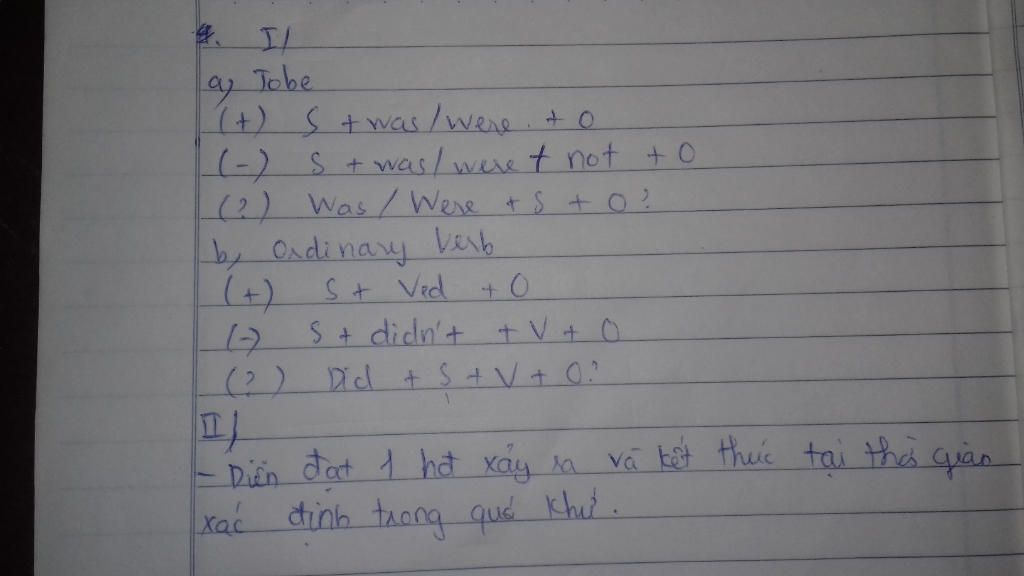 I/
a, Tobe
(+) S + was/were + O
(-) S + was/were + not + O
(?) Was/Were + S + O?
b, Ordinary Verb
(+) S + Ved + O
(-) S + didn't + V + O
(?) Did + S + V + O?
II/
- Diễn đạt 1 hđ xảy ra và kết thúc tại thời gian
xác định trong quá khứ.